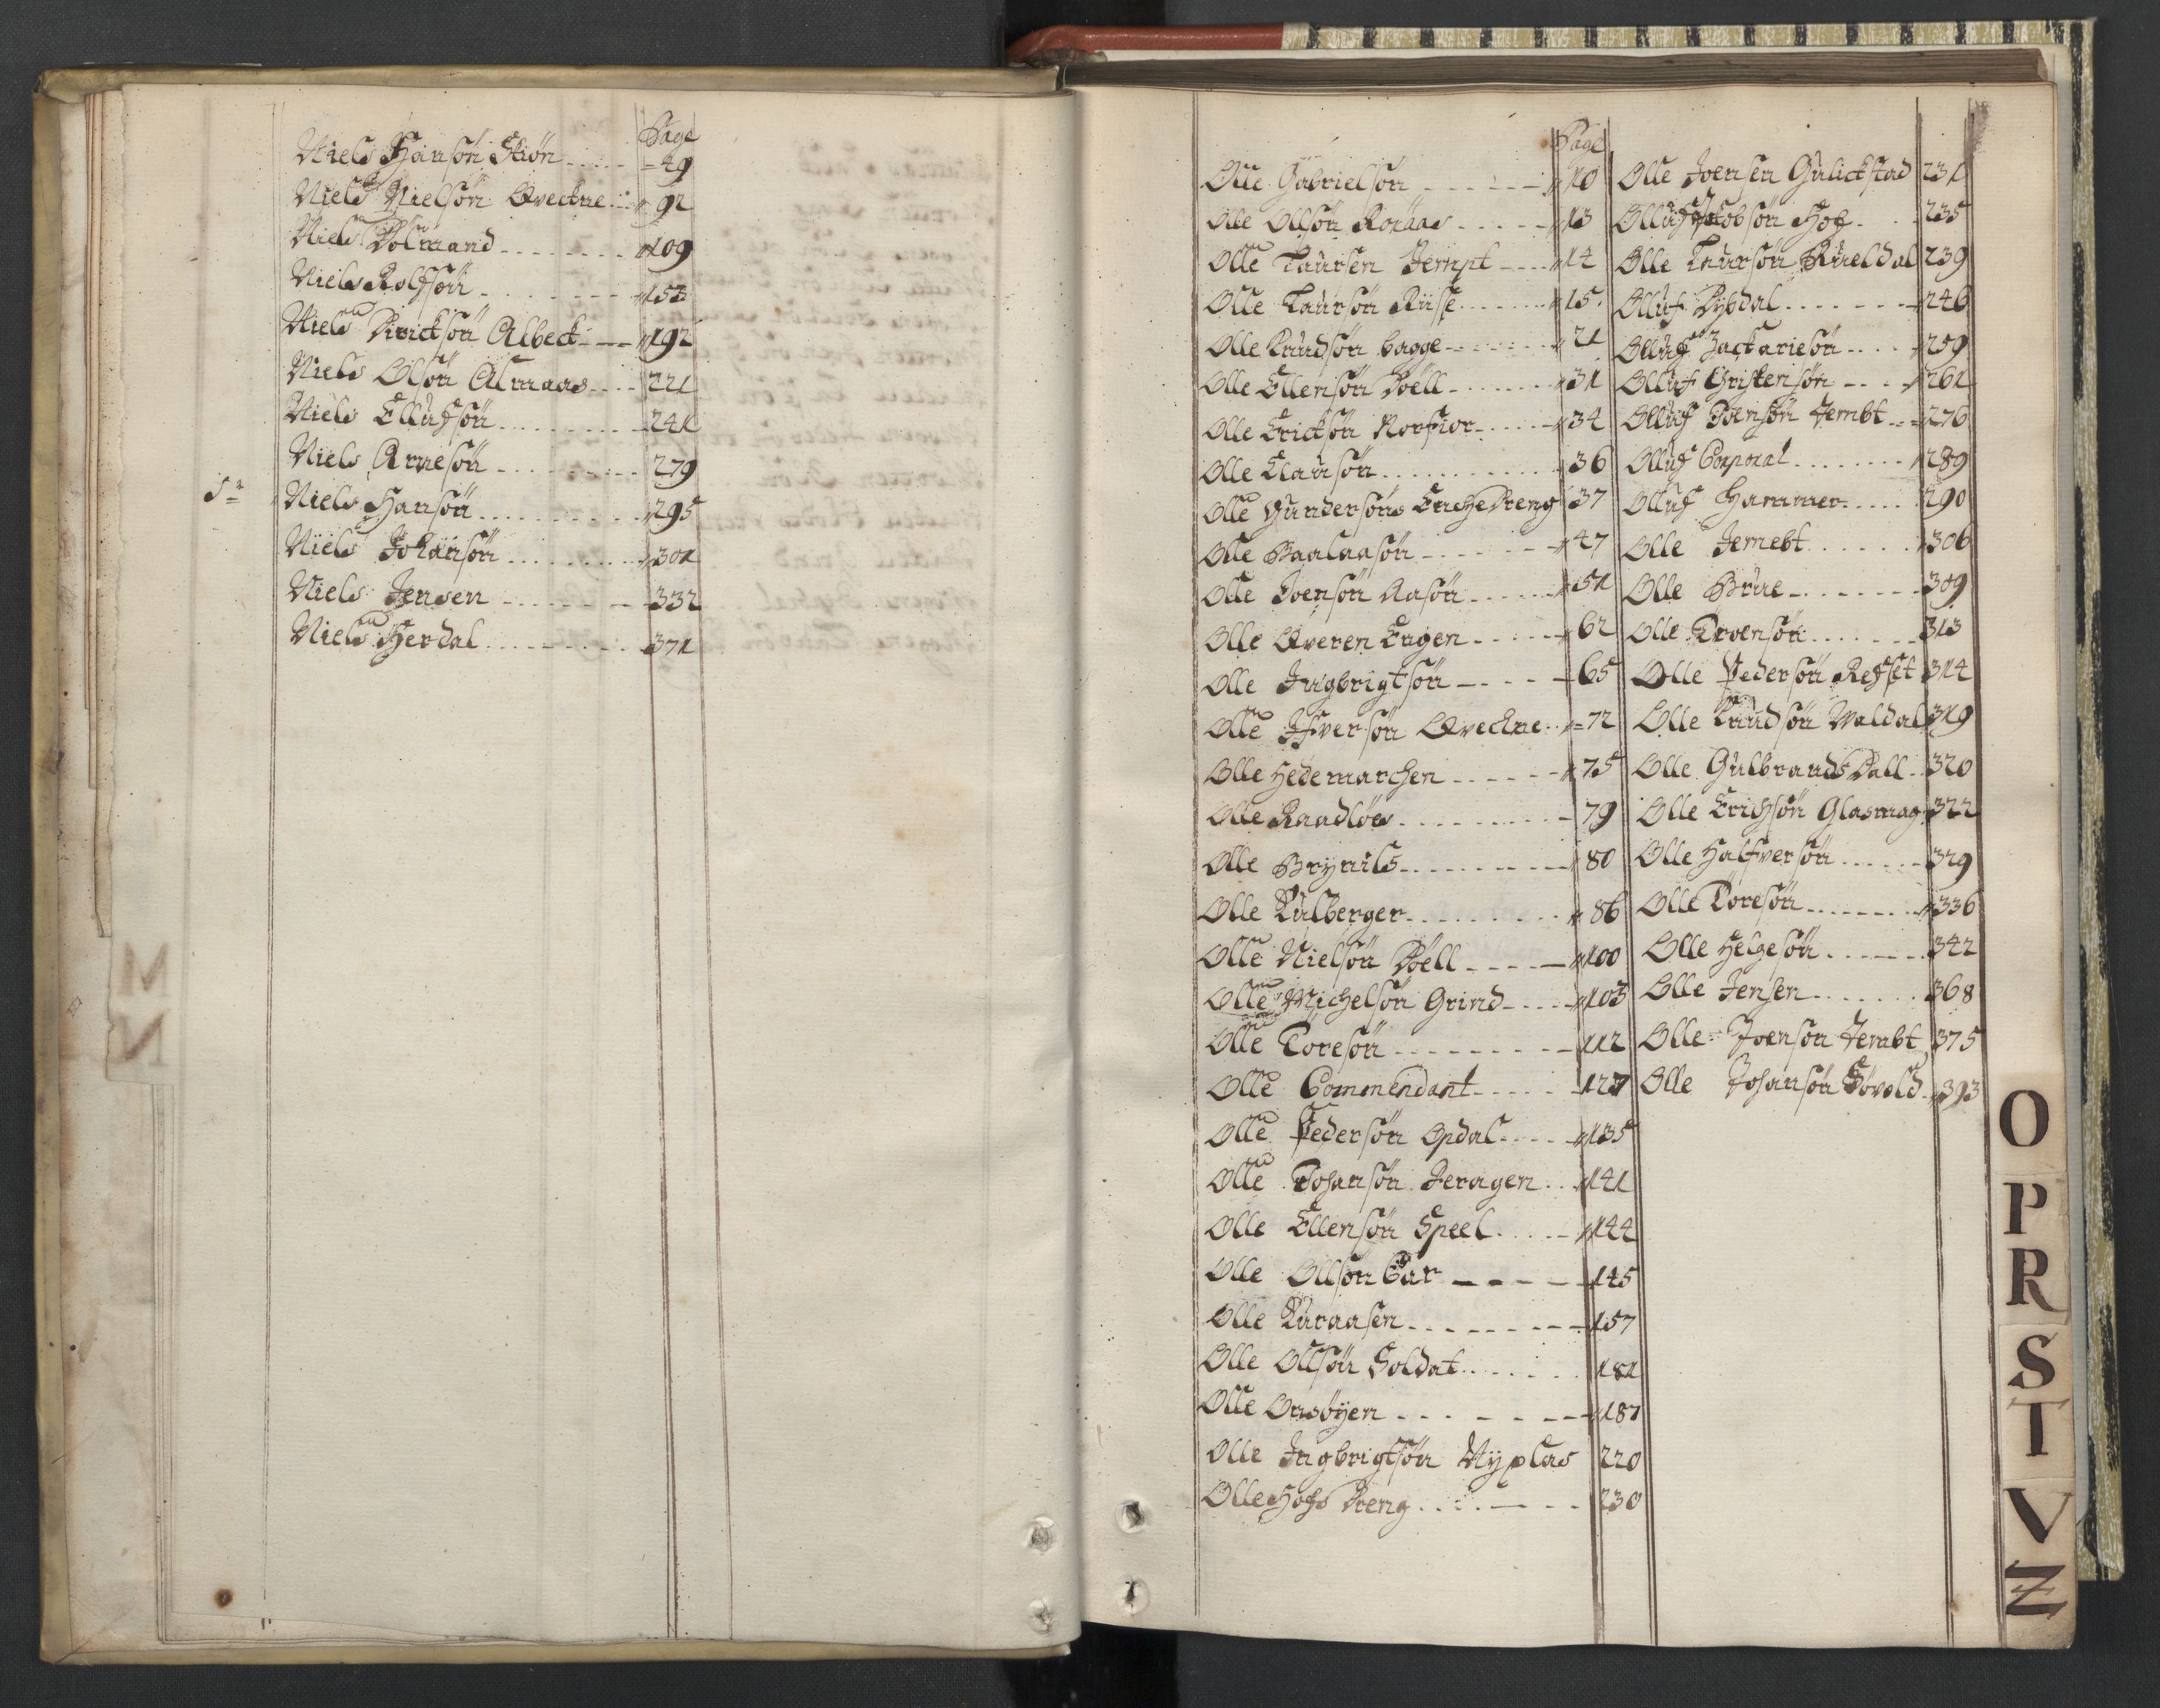 Page
Niels Hansön Skiön 49
Niels Nielsön Qveckne 92
Niels Dolmand 109
Niels Rolfsön 153
Niels Diricksön Albeck 192
Niels Olsön Almaas 221
Niels Ellufsön 241
Niels Arnesön 279
Niels Hansön 295
Niels Johansön 301
Niels Jensen 332
Niels Herdal 371
M
N
Page
Olle Gabrielsön 10
Olle Ollsön Roraas 13
Olle Laursen Jempt 14
Olle Laursön Riise 15
Olle Knudsön bagge 21
Olle Ellensön Döell 31
Olle Ericksön Norfior 34
Olle Clausön 36
Olle Gundersöns Enchedreng 37
Olle Baalaasön 47
Olle Joensön Aasön 51
Olle Qveren Engen 62
Olle Ingbrigtsön 65
Olle Ifversön Qveckne 72
Olle Hedemarchen 75
Olle Raadlöes 79
Olle Brynils 80
Olle Kulberger 86
Olle Nielsön Döell 100
Olle Michelsön Grind 103
Olle Töresön 112
Olle Commendant 127
Olle Pedersön Opdal 135
Olle Johansön Jeragen 141
Olle Ellensön Speel 144
Olle Ollsön Car 145
Olle Kuraasen 157
Olle Ollsön Soldat 181
Olle Onsöyen 187
Olle Ingbrigtsön Nyplas 220
Olle Hofs Dreng 230
Olle Joensen Gulickstad 231
Olluf Jacobsön Hof 235
Olle Laursön Rueldal 239
Olluf Dybdal 246
Olluf Zackariesön 259
Olluf Christensön 261
Olluf Joensön Jembt 276
Olluf Corporal 289
Olluf Hammer 290
Olle Jemebt 306
Olle Brue 309
Olle Troensön 313
Olle Pedersön Refset 314
Olle Knudsön Waldal 319
Olle Gulbrands Dall 320
Olle Erichsön Glasmag 322
Olle Halfversön 329
Olle Toresön 336
Olle Helgesön 342
Olle Jensen 368
Olle Joensön Jembt 375
Olle Johansön 393
O
P
R
S
T
V
Z